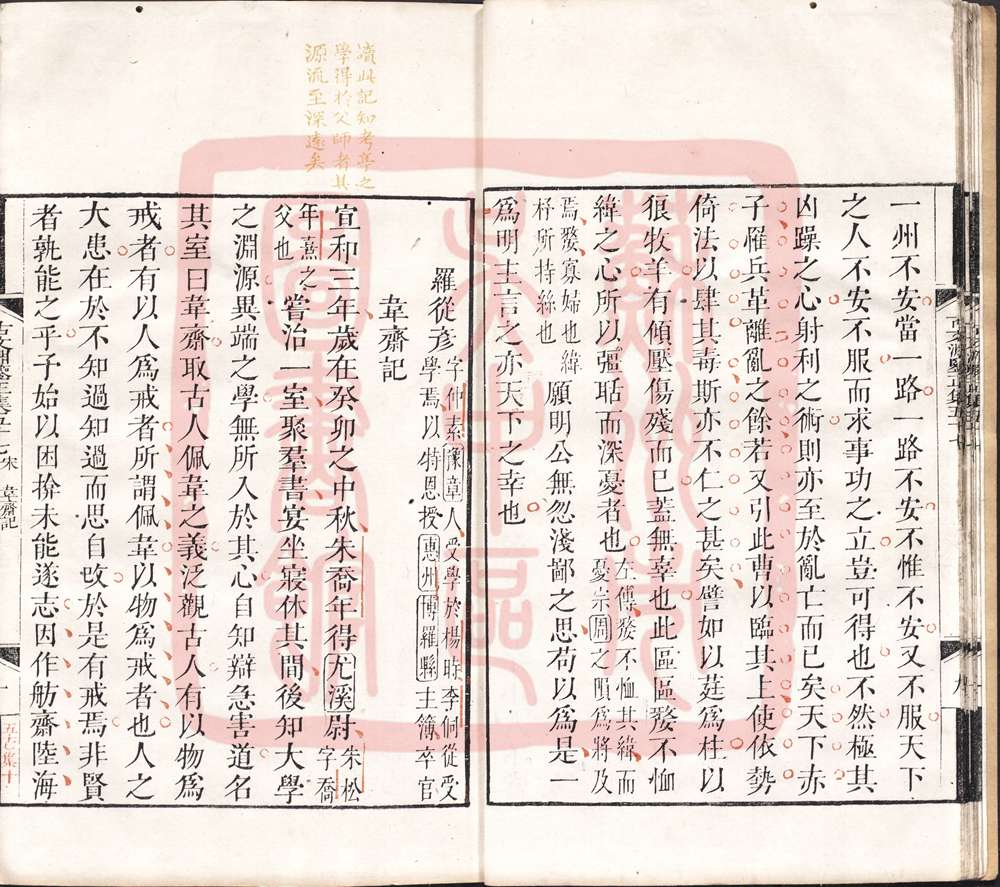 一州不安當一路一路不安不惟不安又不服天下
之人不安不服而求事功之立豈可得也不然極其
凶躁之心射利之術則亦至於亂亡而已矣天下赤
子罹兵革離亂之餘若又引此曹以臨其上使依勢
倚法以肆其毒斯亦不仁之甚矣譬如以莛爲柱以
狼牧羊有傾壓傷殘而已蓋無幸也此區區嫠不恤
緯之心所以彊聒而深憂者也左傳嫠不恤其緯而
憂宗周之隕爲將及
焉嫠寡婦也緯
杼所持絲也願明公無忽淺鄙之思苟以爲是一
爲明主言之亦天下之幸也
讀此記知考亭之
學得於父師者其
源流至深遠矣
羅從彥字仲素豫章人受學於楊時李侗從受
學焉以特恩授惠州博羅縣主簿卒官
韋齋記
宣和三年歲在癸卯之中秋朱喬年得尤溪尉朱松
字喬
年熹之
父也嘗治一室聚羣書宴坐寢休其間後知大學
之淵源異端之學無所入於其心自知辯急害道名
其室曰韋齋取古人佩韋之義泛觀古人有以物爲
戒者有以人爲戒者所謂佩韋以物爲戒者也人之
大患在於不知過知過而思自改於是有戒焉非賢
者孰能之乎予始以困掵未能遂志因作舫齋陸海
宋 韋齋記